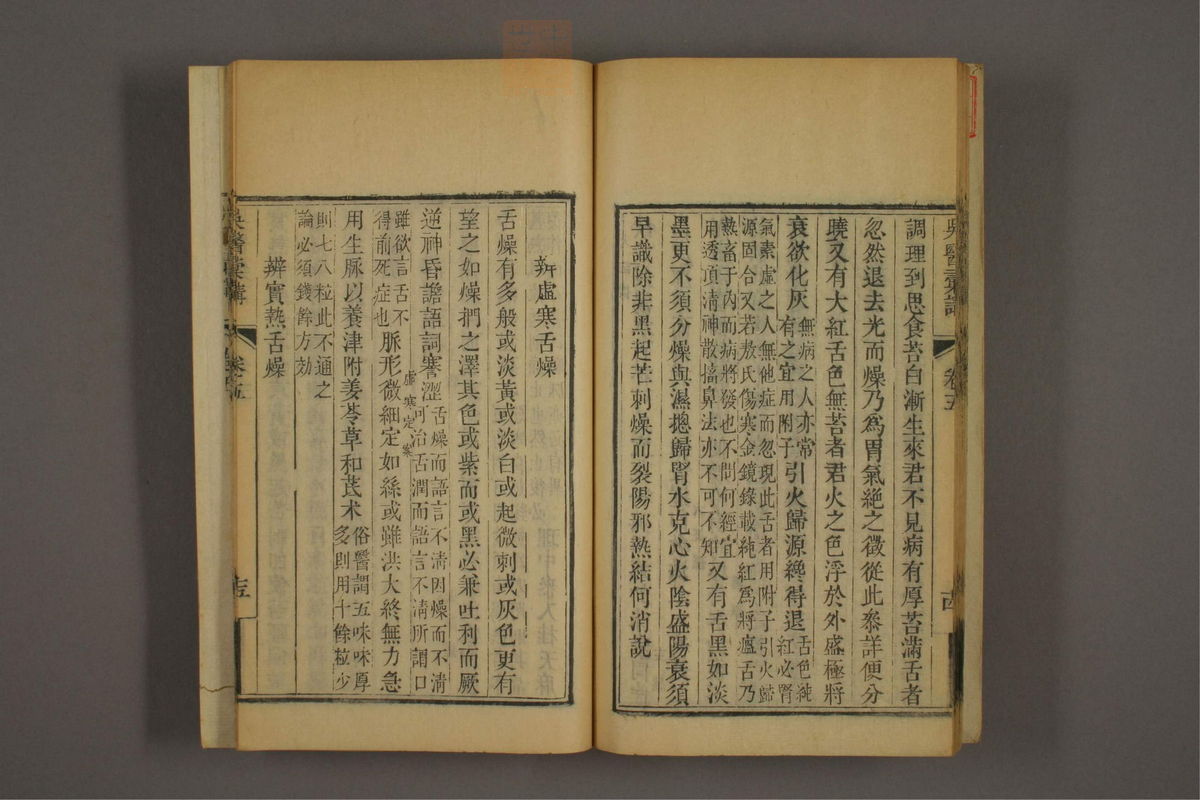 調理到思食苔白漸生來君不見病有厚苔滿舌者
忽然退去光而燥乃爲胃氣絶之徵從此叅詳便分
曉又有大紅舌色無苔者君火之色浮於外盛極將
衰欲化灰
無病之人亦常
有之宜用附子
引火歸源纔得退
舌色純
紅必腎
氣素虛之人無他症而忽現此舌者用附子引火歸
源固合又若敖氏傷寒金鏡錄載純紅爲將瘟舌乃
熱畜于內而病將發也不問何經宜
用透頂清神散搐鼻法亦不可不知
又有舌黑如淡
墨更不須分燥與濕摠歸腎水克心火陰盛陽衰須
早識除非黑起芒刺燥而裂陽邪熱結何消說
吳醫彙講
卷五
辨虛寒舌燥
舌燥有多般或淡黃或淡白或起微刺或灰色更有
望之如燥捫之澤其色或紫而或黑必兼吐利而厥
逆神昏譫語詞蹇澀
舌燥而語言不清因燥而不清
可治舌潤而語言不清所謂口
雖欲言舌不
得前死症也
虛寒定案
脈形微細定如絲或雖洪大終無力急
用生脈以養津附姜苓草和茋术
俗醫謂五味味厚
多則用十餘粒少
則七八粒此不通之
論必須錢餘方効
辨實熱舌燥
吳醫彙講
卷五